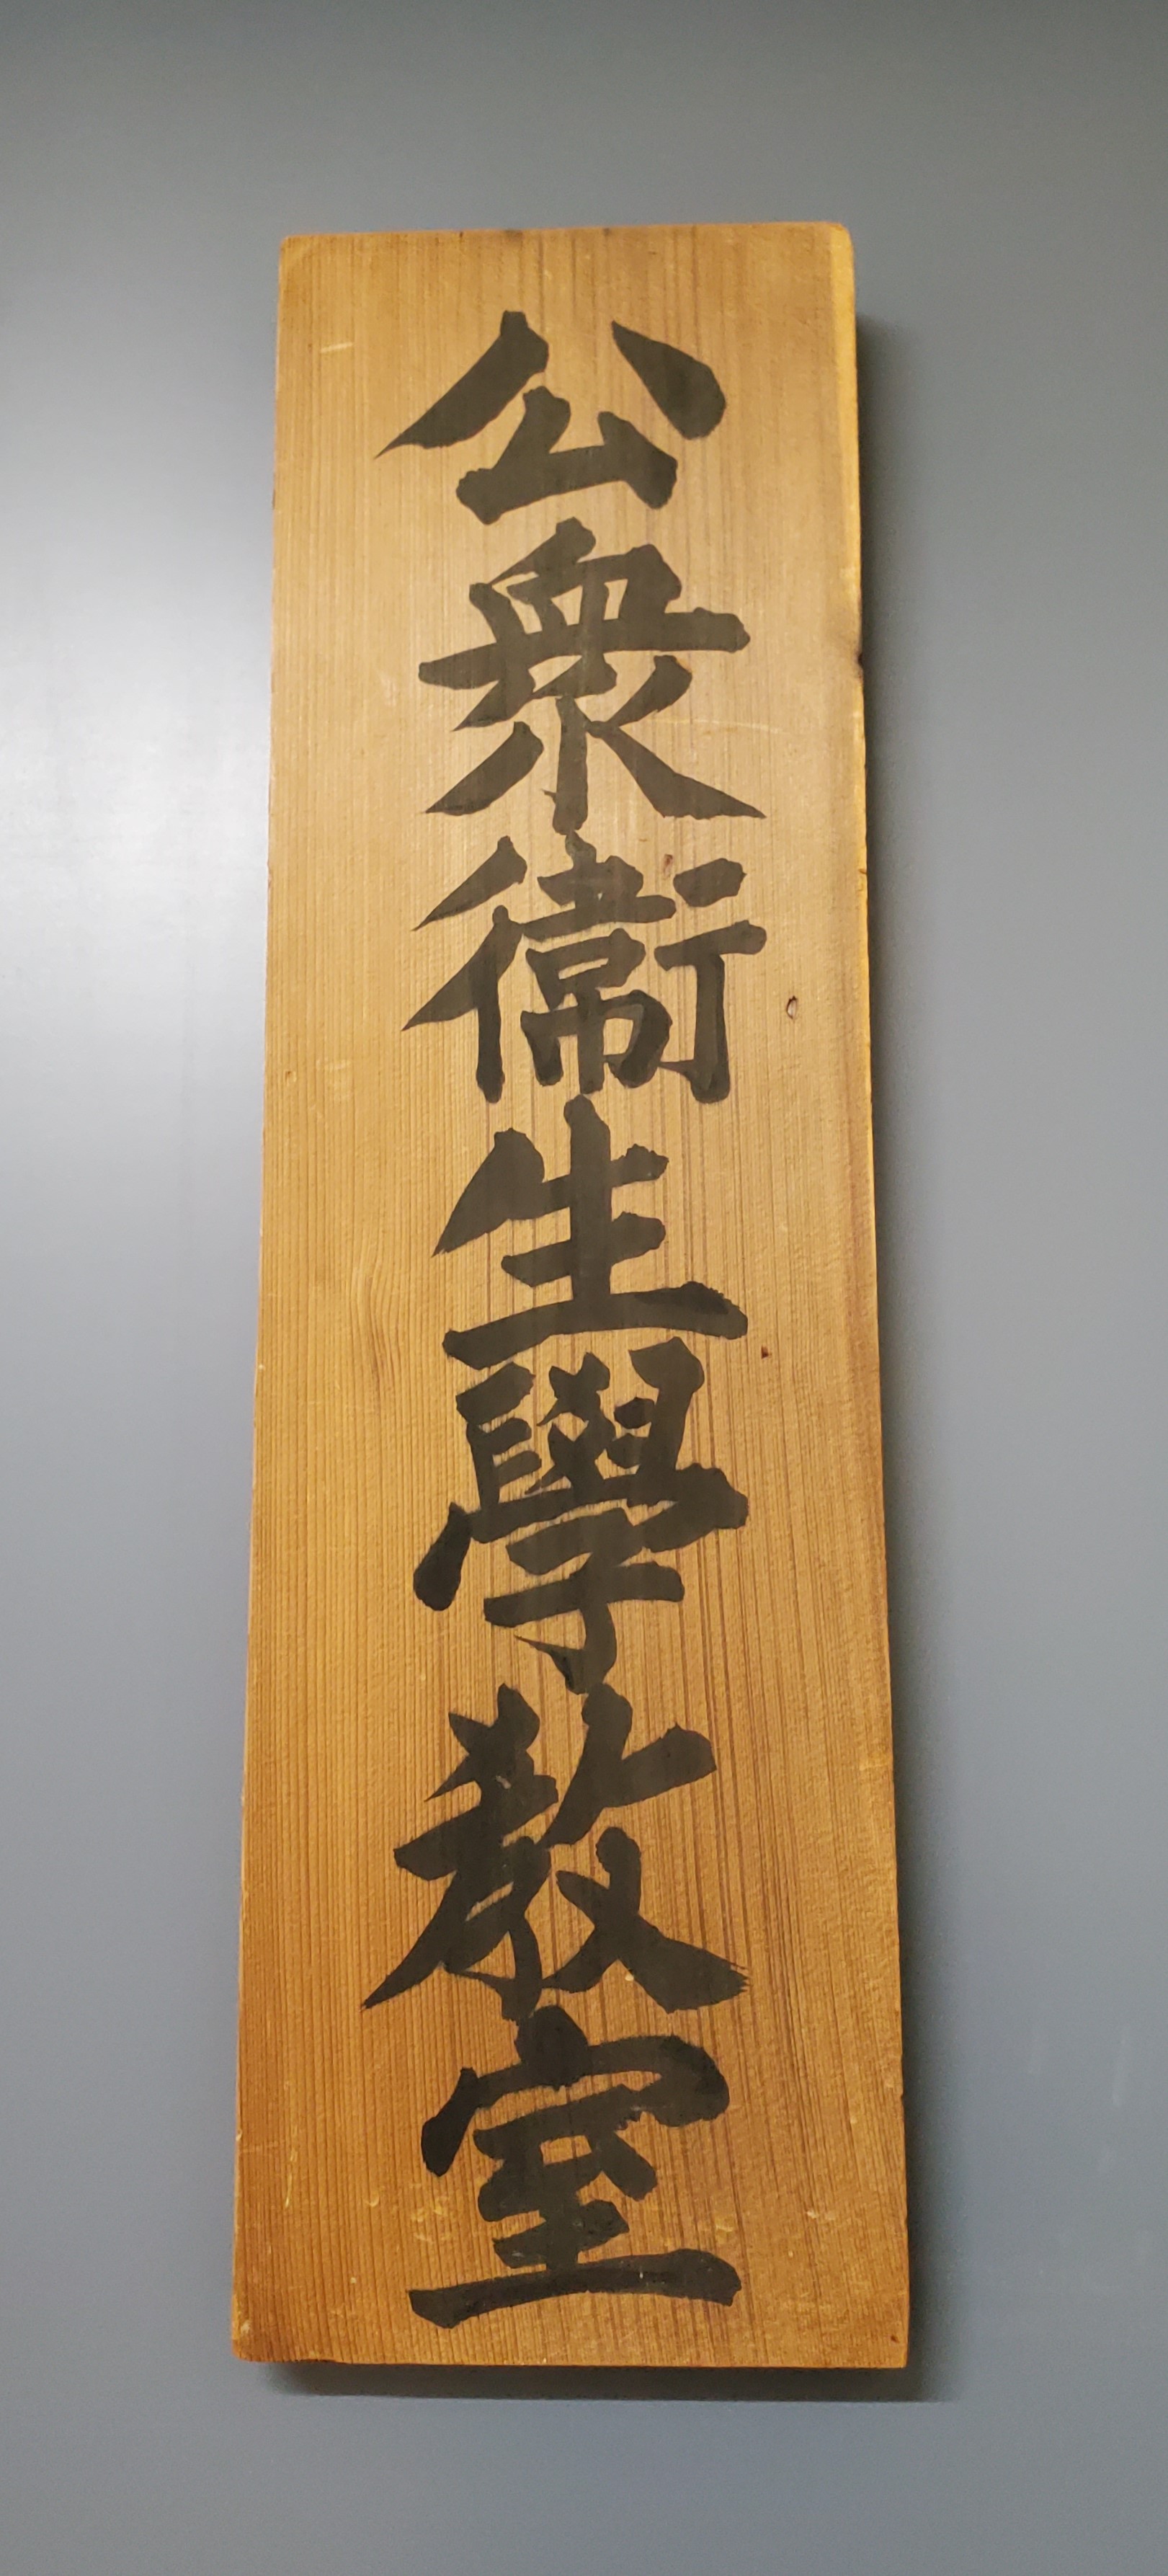 公衆衞生學教室